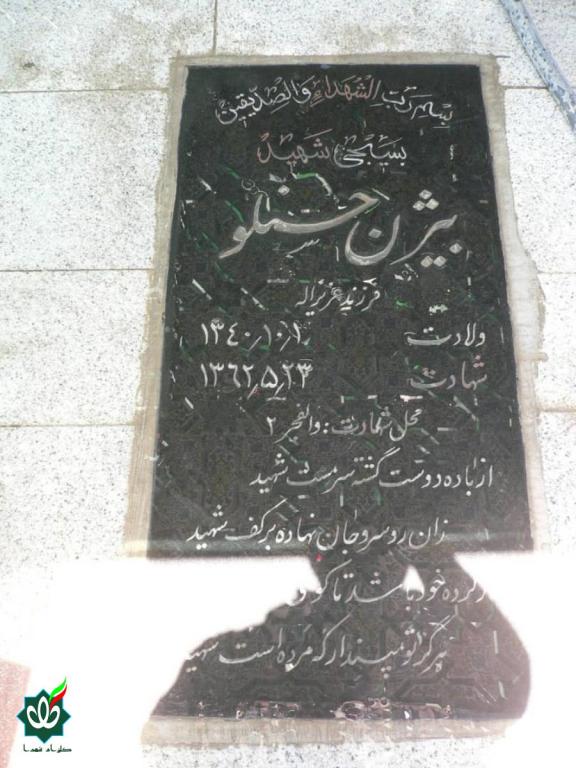 بسم رب الشهداء والصدیقین
بسیجی شهید
بیژن حسنلو
فرزند عزیزاله
ولادت ۱۳۴۰٫۱۰٫۱
شهادت ۱۳۶۲٫۵٫۲۳
محل شهادت: والفجر ۲
از باده دوست گشته سرمست شهید
زان رو سر و جان نهاده بر کف شهید
کرده خود باشد تا
هرگز تو مپندار که مرده است شهید